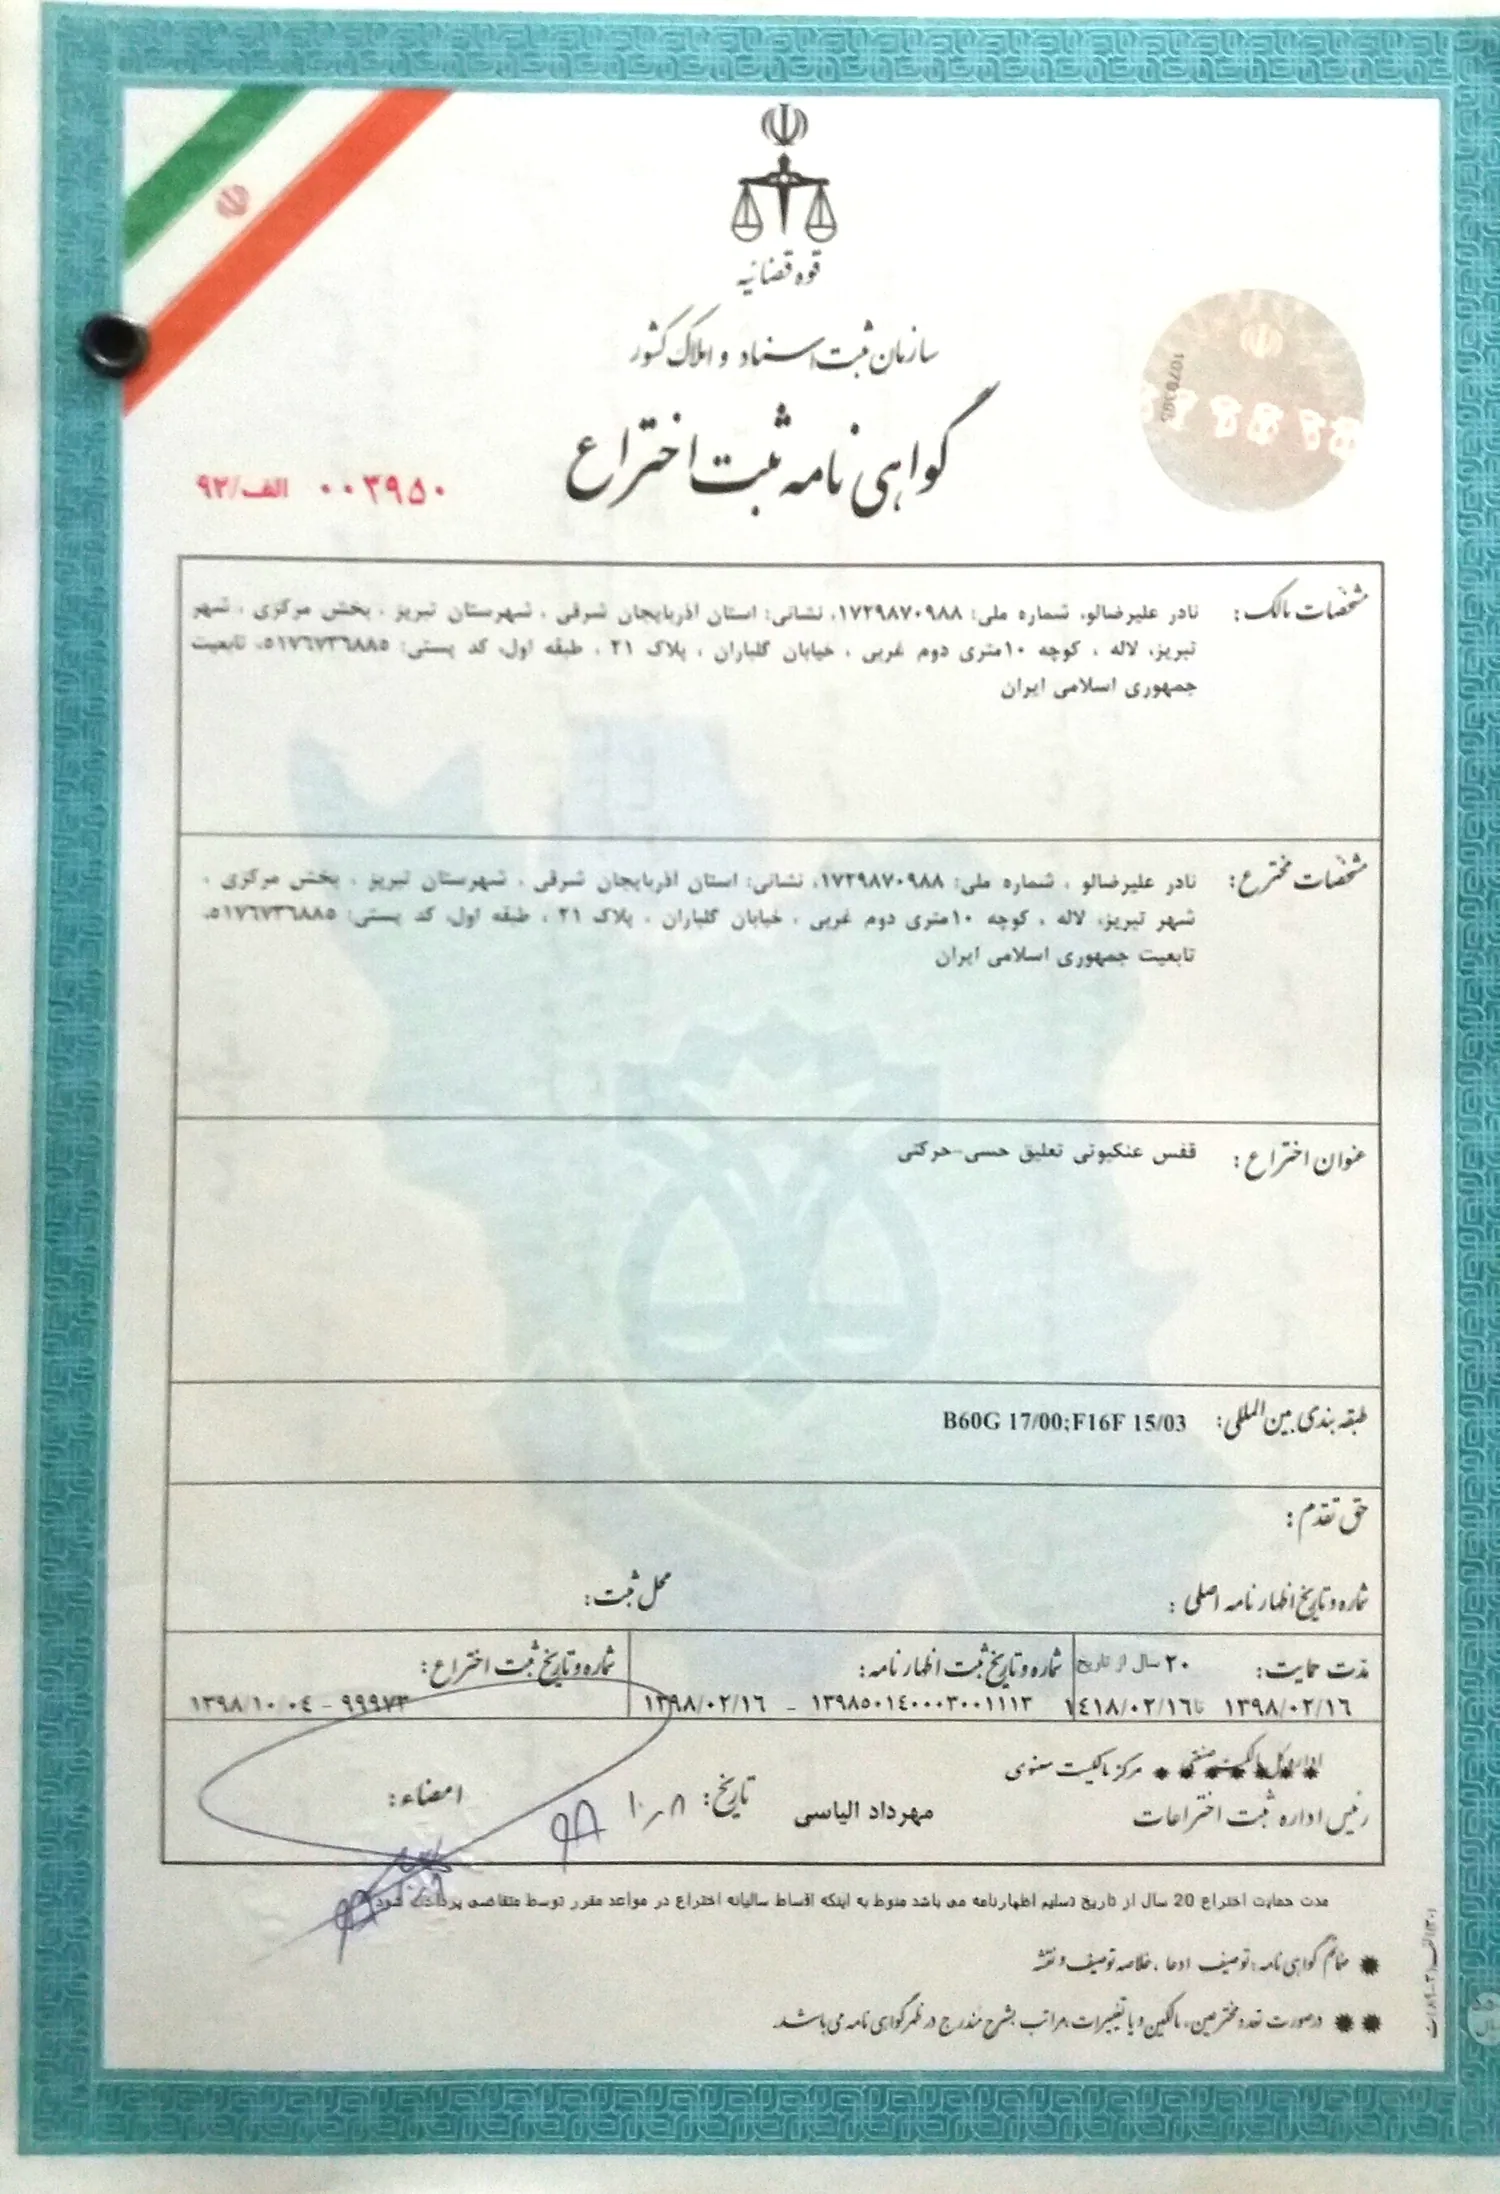 قوه قضائیه
سازمان ثبت اسناد و املاک کشور
گواهی نامه ثبت اختراع
۰۰۳۹۵۰ الف/۹۲
مشخصات مالک: نادر علیرضالو، شماره ملی: ۱۷۲۹۸۷۰۹۸۸، نشانی: استان آذربایجان شرقی ، شهرستان تبریز ، بخش مرکزی ، شهر
تبریز، لاله ، کوچه ۱۰متری دوم غربی ، خیابان گلباران ، پلاک ۲۱ ، طبقه اول، کد پستی: ۵۱۷۶۷۳۶۸۸۵، تابعیت
جمهوری اسلامی ایران
مشخصات مخترع: نادر علیرضالو ، شماره ملی: ۱۷۲۹۸۷۰۹۸۸، نشانی: استان آذربایجان شرقی ، شهرستان تبریز ، بخش مرکزی ،
شهر تبریز، لاله ، کوچه ۱۰متری دوم غربی ، خیابان گلباران ، پلاک ۲۱ ، طبقه اول، کد پستی: ۵۱۷۶۷۳۶۸۸۵،
تابعیت جمهوری اسلامی ایران
عنوان اختراع: قفس عنکبوتی تعلیق حسی-حرکتی
طبقه بندی بین المللی: B60G 17/00;F16F 15/03
حق تقدم:
شماره و تاریخ اظهارنامه اصلی: محل ثبت:
مدت حمایت: ۲۰ سال از تاریخ شماره و تاریخ ثبت اظهارنامه: شماره و تاریخ ثبت اختراع:
۱۳۹۸/۰۲/۱۶ تا ۱۴۱۸/۰۲/۱۶ ۱۳۹۸۵۰۱۴۰۰۰۳۰۰۱۱۱۳ - ۱۳۹۸/۰۲/۱۶ ۹۹۹۷۳ - ۱۳۹۸/۱۰/۰۴
اداره کل مالکیت صنعتی مرکز مالکیت معنوی
رئیس اداره ثبت اختراعات مهرداد الیاسی تاریخ: امضاء:
مدت حمایت اختراع 20 سال از تاریخ تسلیم اظهارنامه می باشد منوط به اینکه اقساط سالیانه اختراع در مواعد مقرر توسط متقاضی پرداخت شود
ضمائم گواهی نامه: توصیف، ادعا، خلاصه توصیف و نقشه
در صورت تعدد مخترعین، مالکین و یا تغییرات، مراتب بشرح مندرج در ظهر گواهی نامه می باشد.